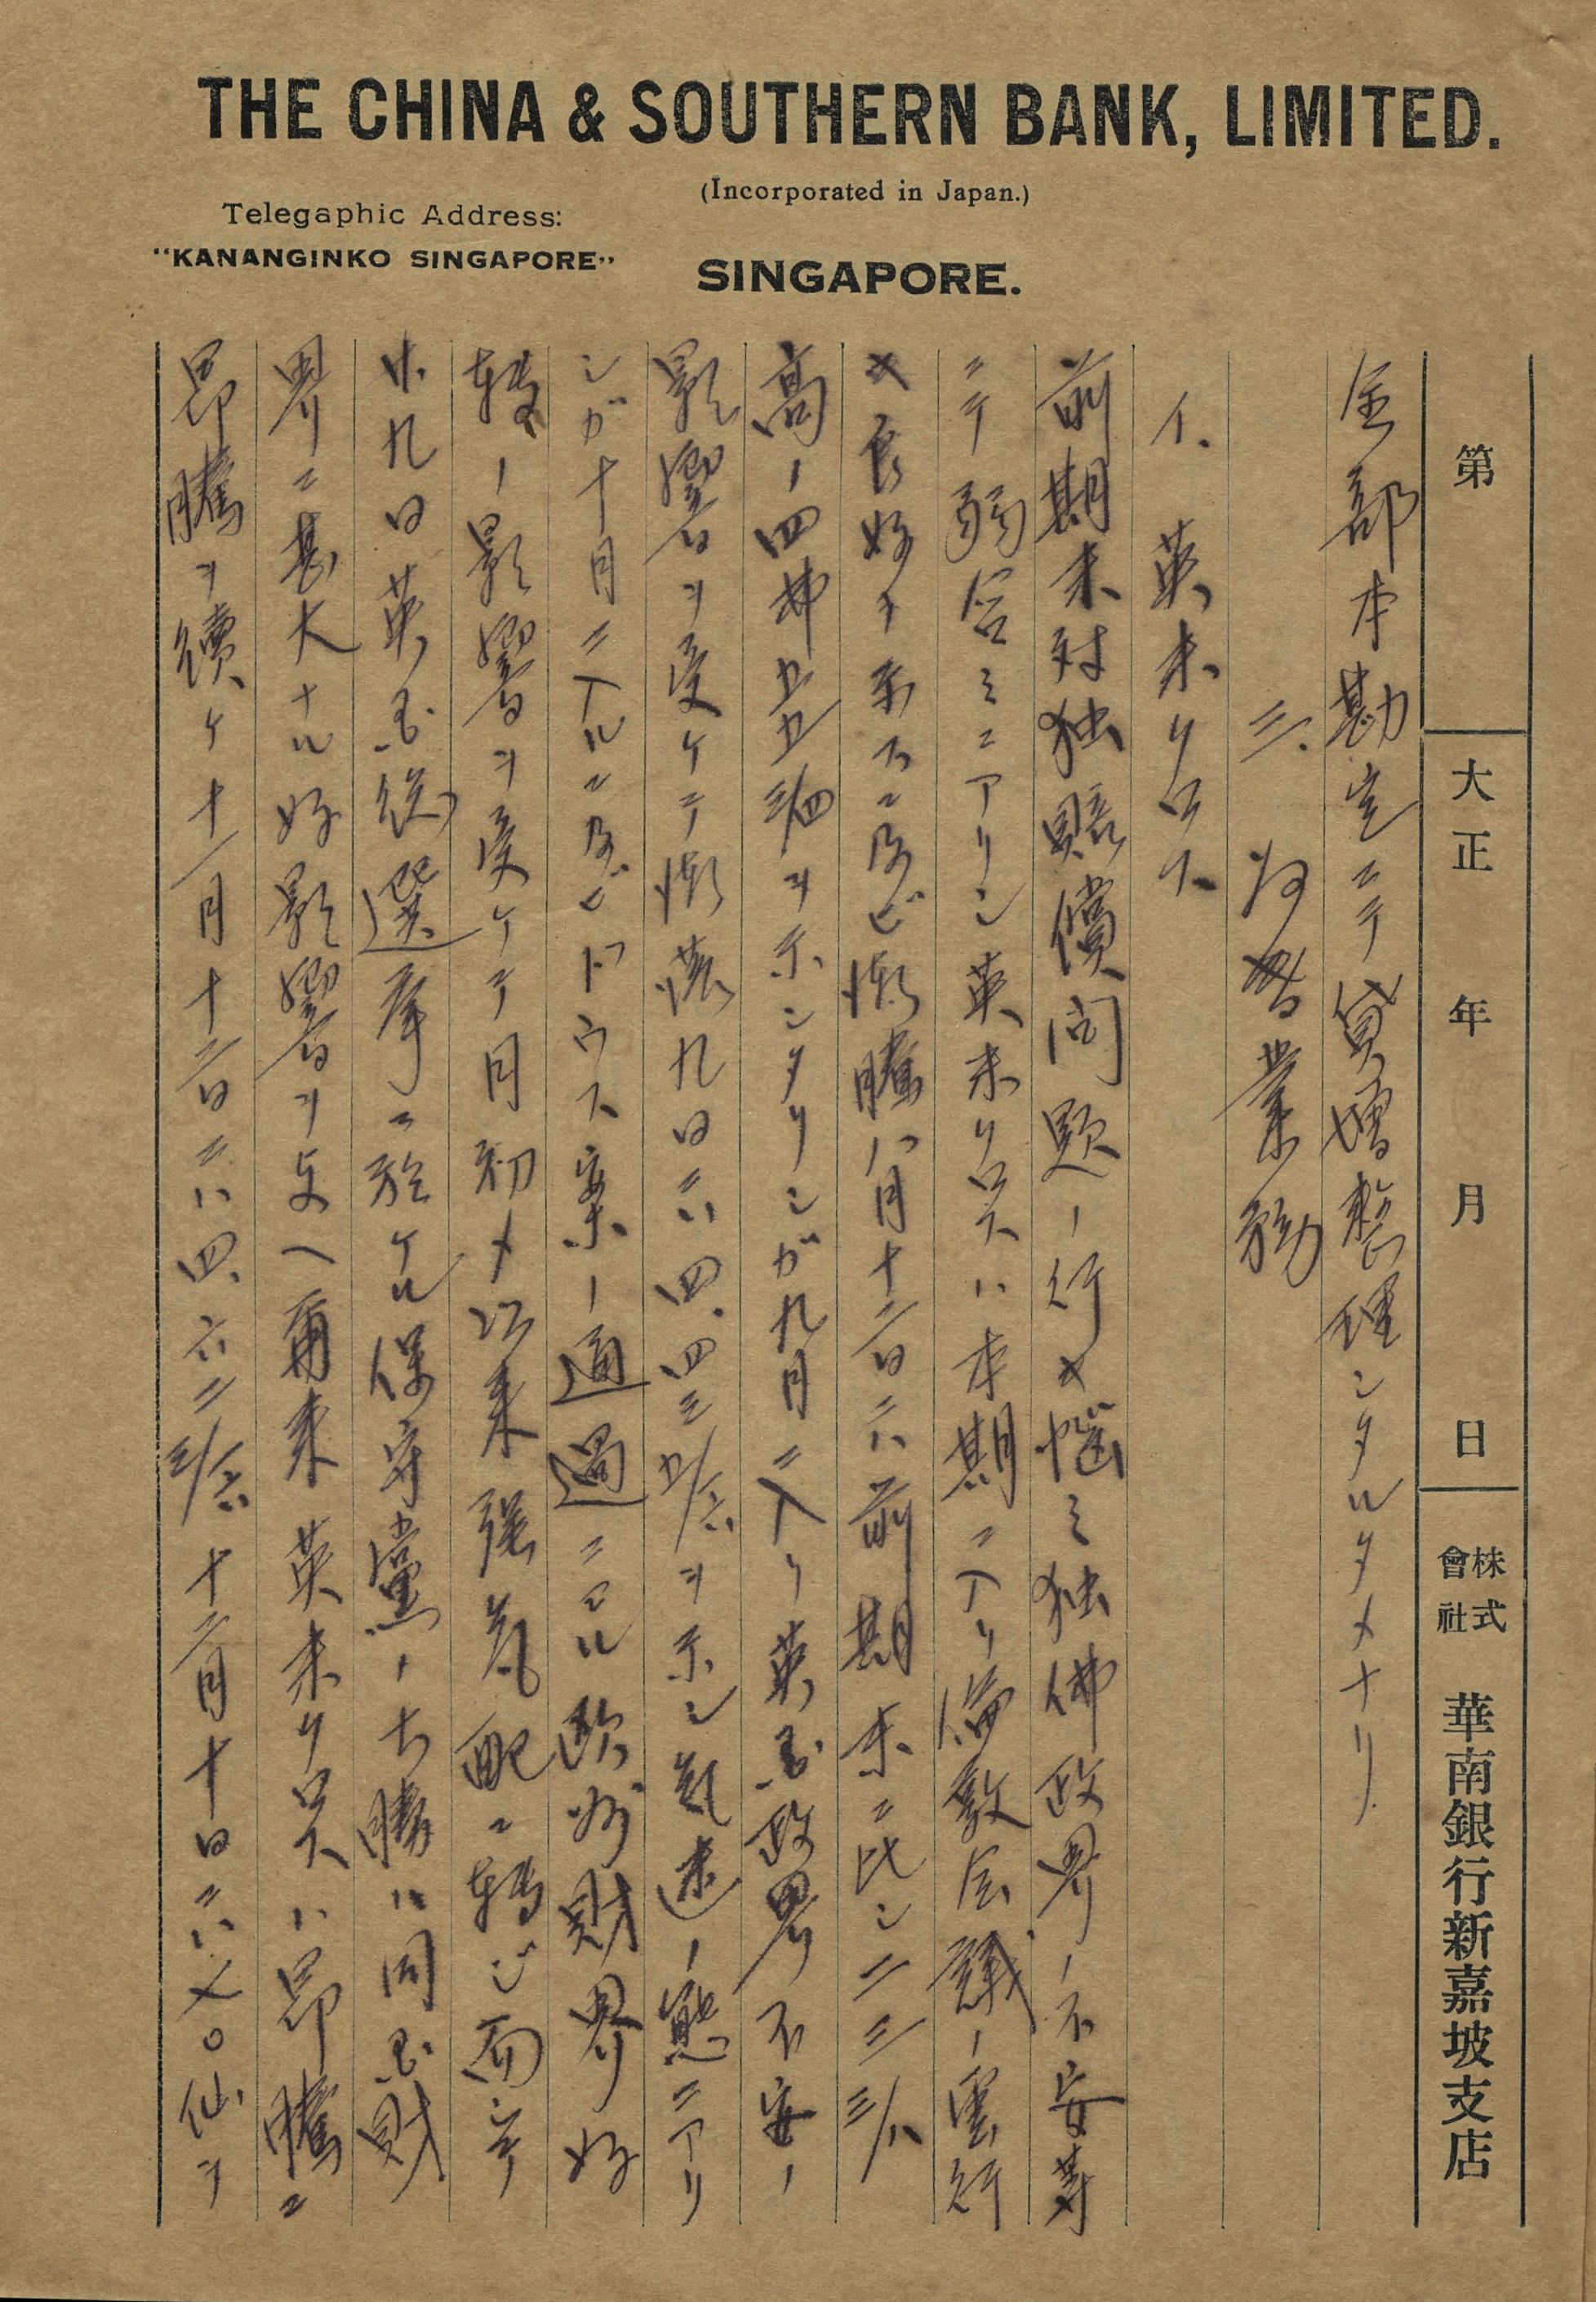 THE CHINA & SOUTHERN BANK, LIMITED.
(Incorporated in Japan.)
Telegaphic Address:
"KANANGINKO SINGAPORE"
SINGAPORE.
第 大正 年 月 日 株式會社 華南銀行新嘉坡支店
全部本勘定ニテ貸増整理シタルタメナリ
三、為替業務
イ、英米クロス
前期末対独賠償問題ノ行キ悩ミ独佛政界ノ不安等
ニテ弱含ミニアリシ英米クロスハ本期ニ入リ倫敦会議ノ雲行
キ良好ヲ示スニ及ビ漸騰八月十二日ニハ前期末ニ比シ二三三/八
高ノ四弗五五三/四ヲ示シタリシガ九月ニ入リ英国政界不安ノ
影響ヲ受ケテ漸落九日ニハ四.四三五/十六ヲ示シ気迷ノ態ニアリ
シガ十月ニ入ルニ及ビドウス案ノ通過ニヨル欧洲財界好
転ノ影響ヲ受ケテ月初メ以来強気配ニ転ジ而テ
廿九日英国総選挙ニ於ケル保守党ノ大勝ハ同国財
界ニ甚大ナル好影響ヲ与ヘ爾来英米クロスハ昂騰ニ
昂騰ヲ續ケ十一月十二日ニハ四.六二三/十六十二月十日ニハ七〇仙ヲ